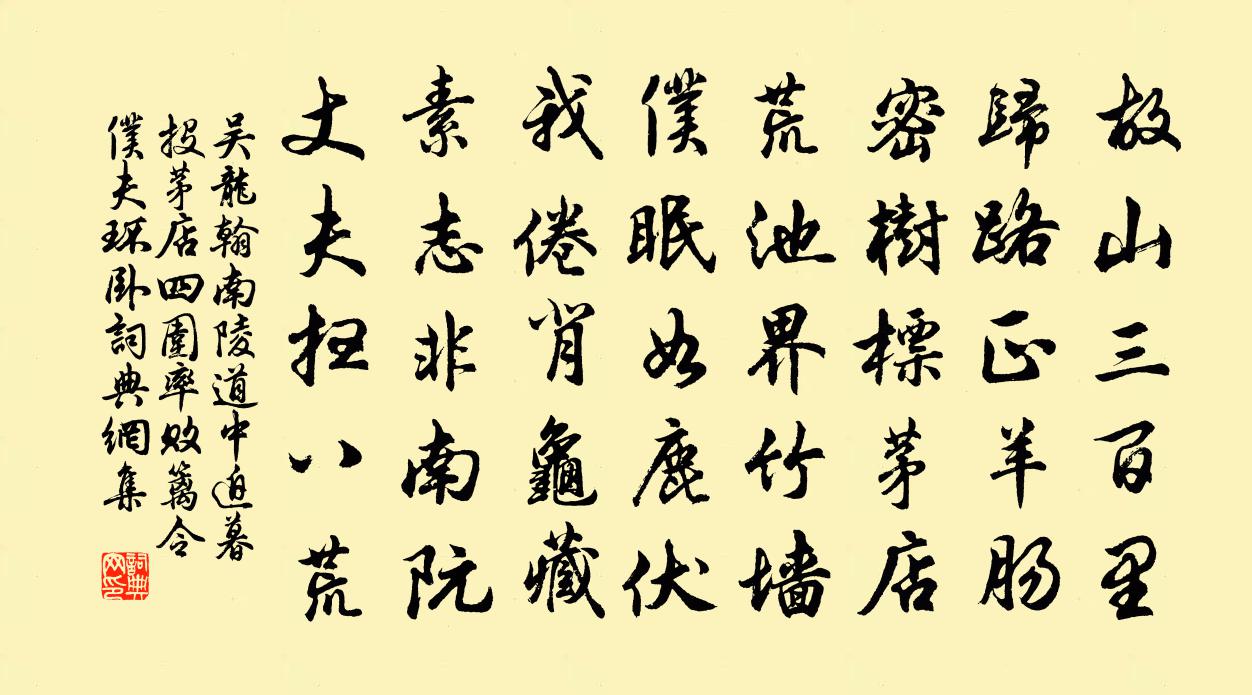 故山三百里
歸路正羊肠
密樹標茅店
荒池界竹墙
僕眠如鹿伏
我倦肖龜藏
素志非南阮
丈夫扫八荒
吴龍翰南陵道中迫暮
投茅店四圍率敗篱令
僕夫环卧詞典網集
詞典网印